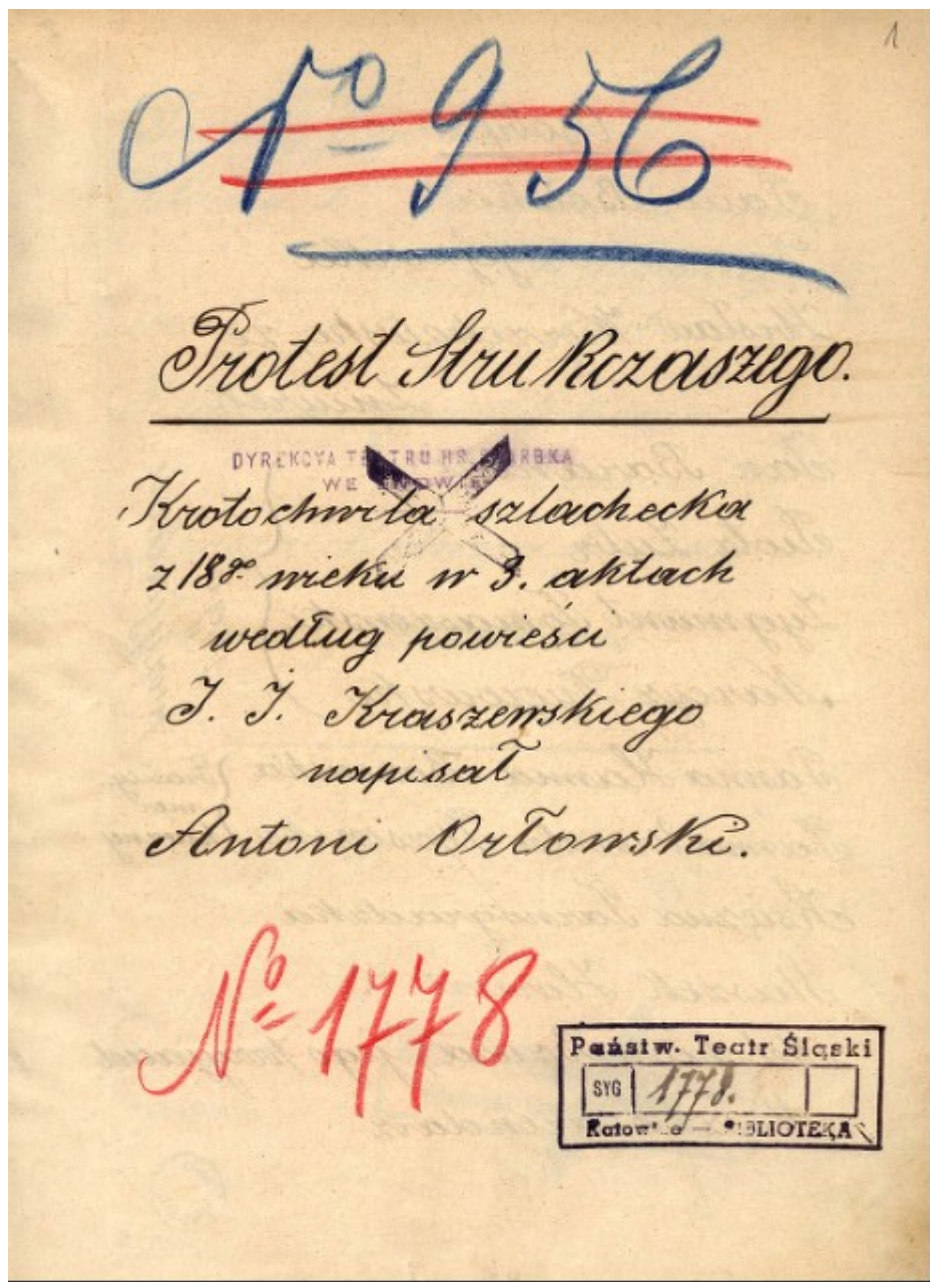 1
No 956
Protest Strukczaszego.
DYREKCYA TEATRU HR. SKARBKA
WE LWOWIE
Krotochwila szlachecka
z 18go wieku w 3. aktach
według powieści
J. I. Kraszewskiego
napisał
Antoni Orłowski.
No 1778
Państw. Teatr Śląski
SYG 1778.
Katowice — BIBLIOTEKA